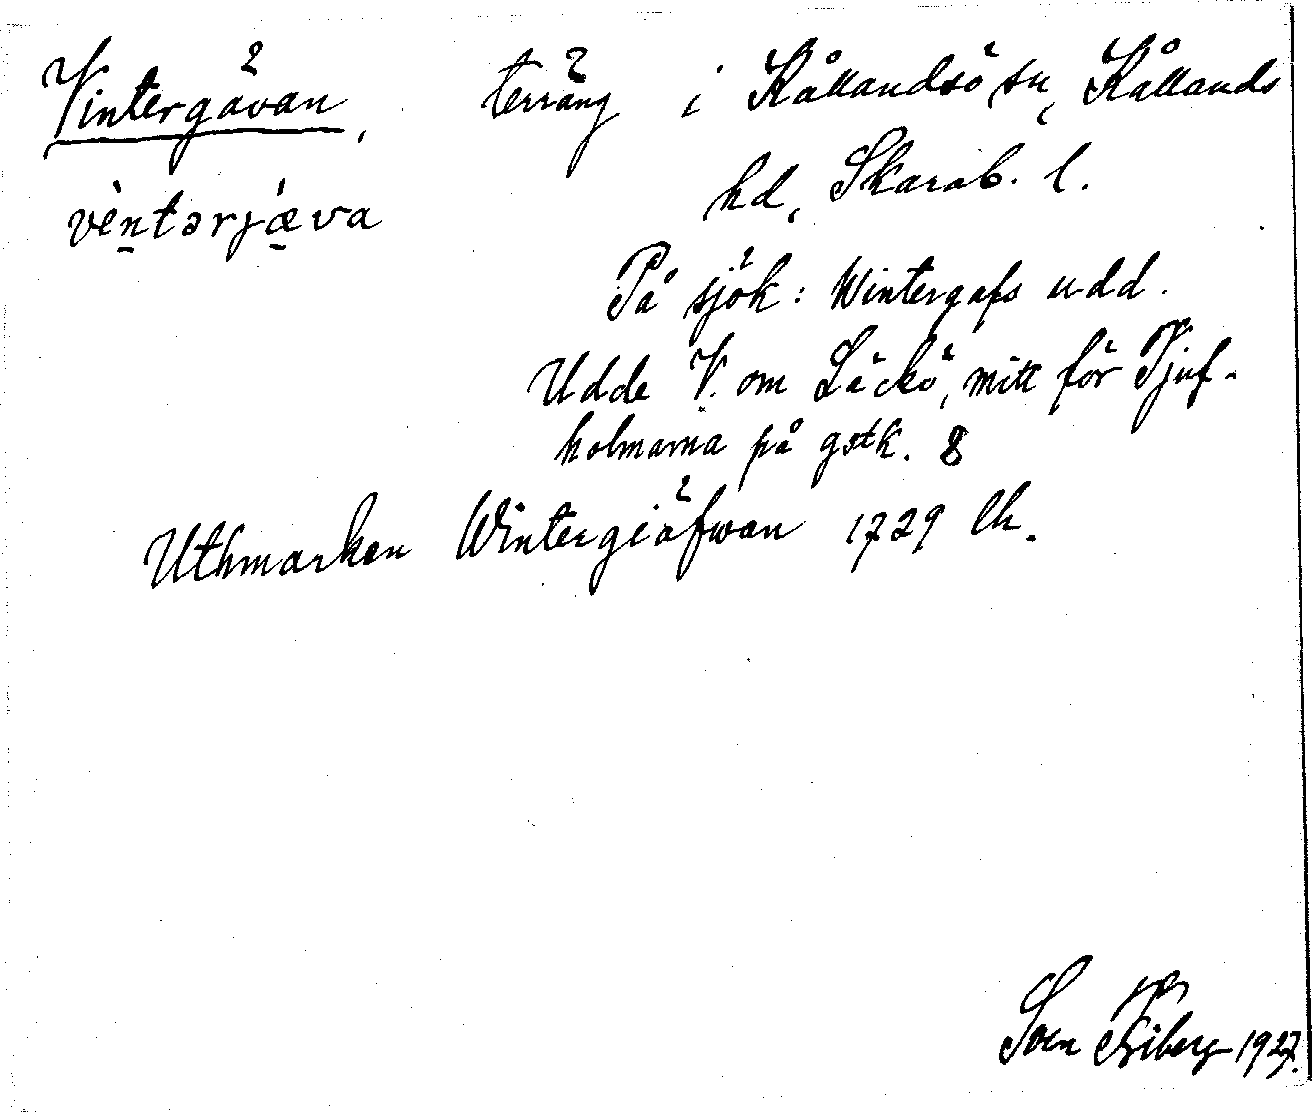 Vintergävan, terräng i Kållandsö sn, Kållands
hd, Skarab. l.
vèntərjǽva
På sjök: Wintergafs udd.
Udde V. om Läckö, mitt för Tjuf-
holmarna på gstk. 8
Uthmarken Wintergiäfwan 1729 Ch.
Sven Friberg 1927.